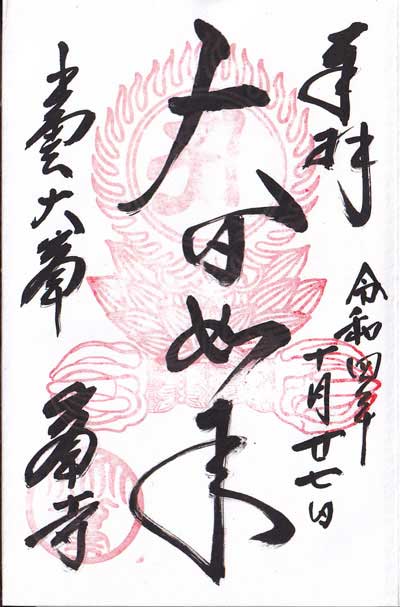 奉拝
令和四年
十月廿七日
大日如来
出雲大峯
峯寺